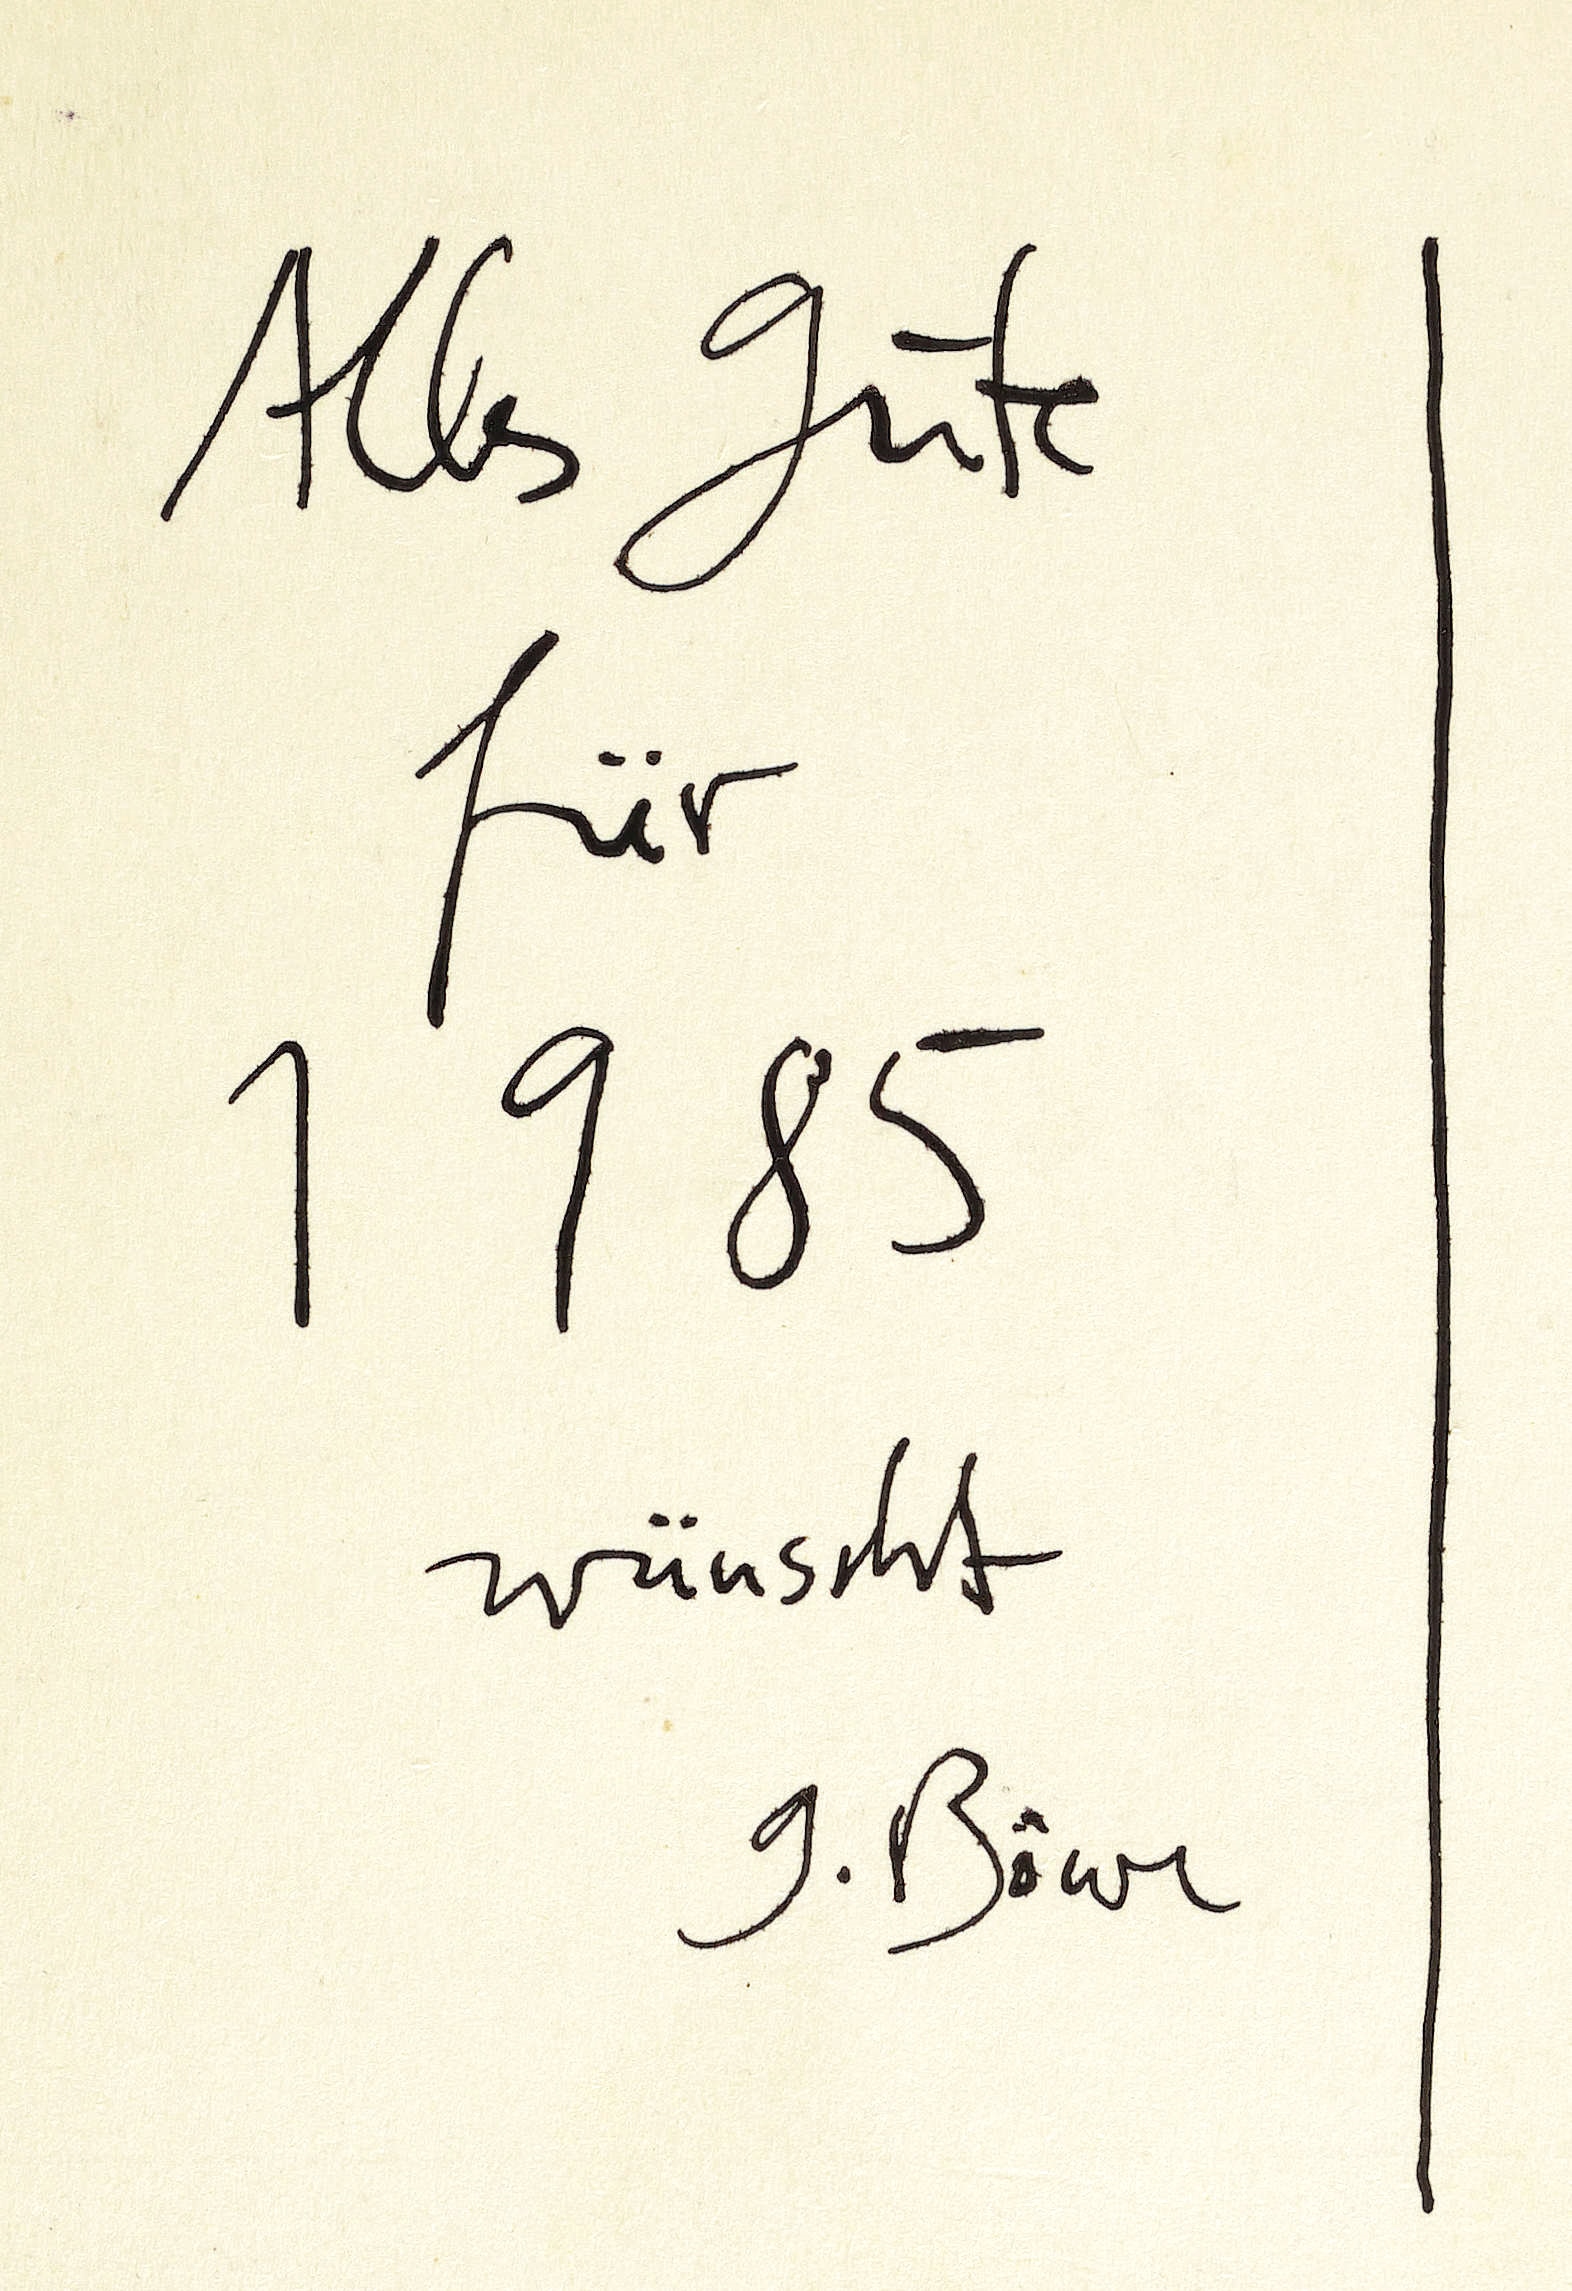 Alles Gute
für
1985
wünscht
J. Böwe